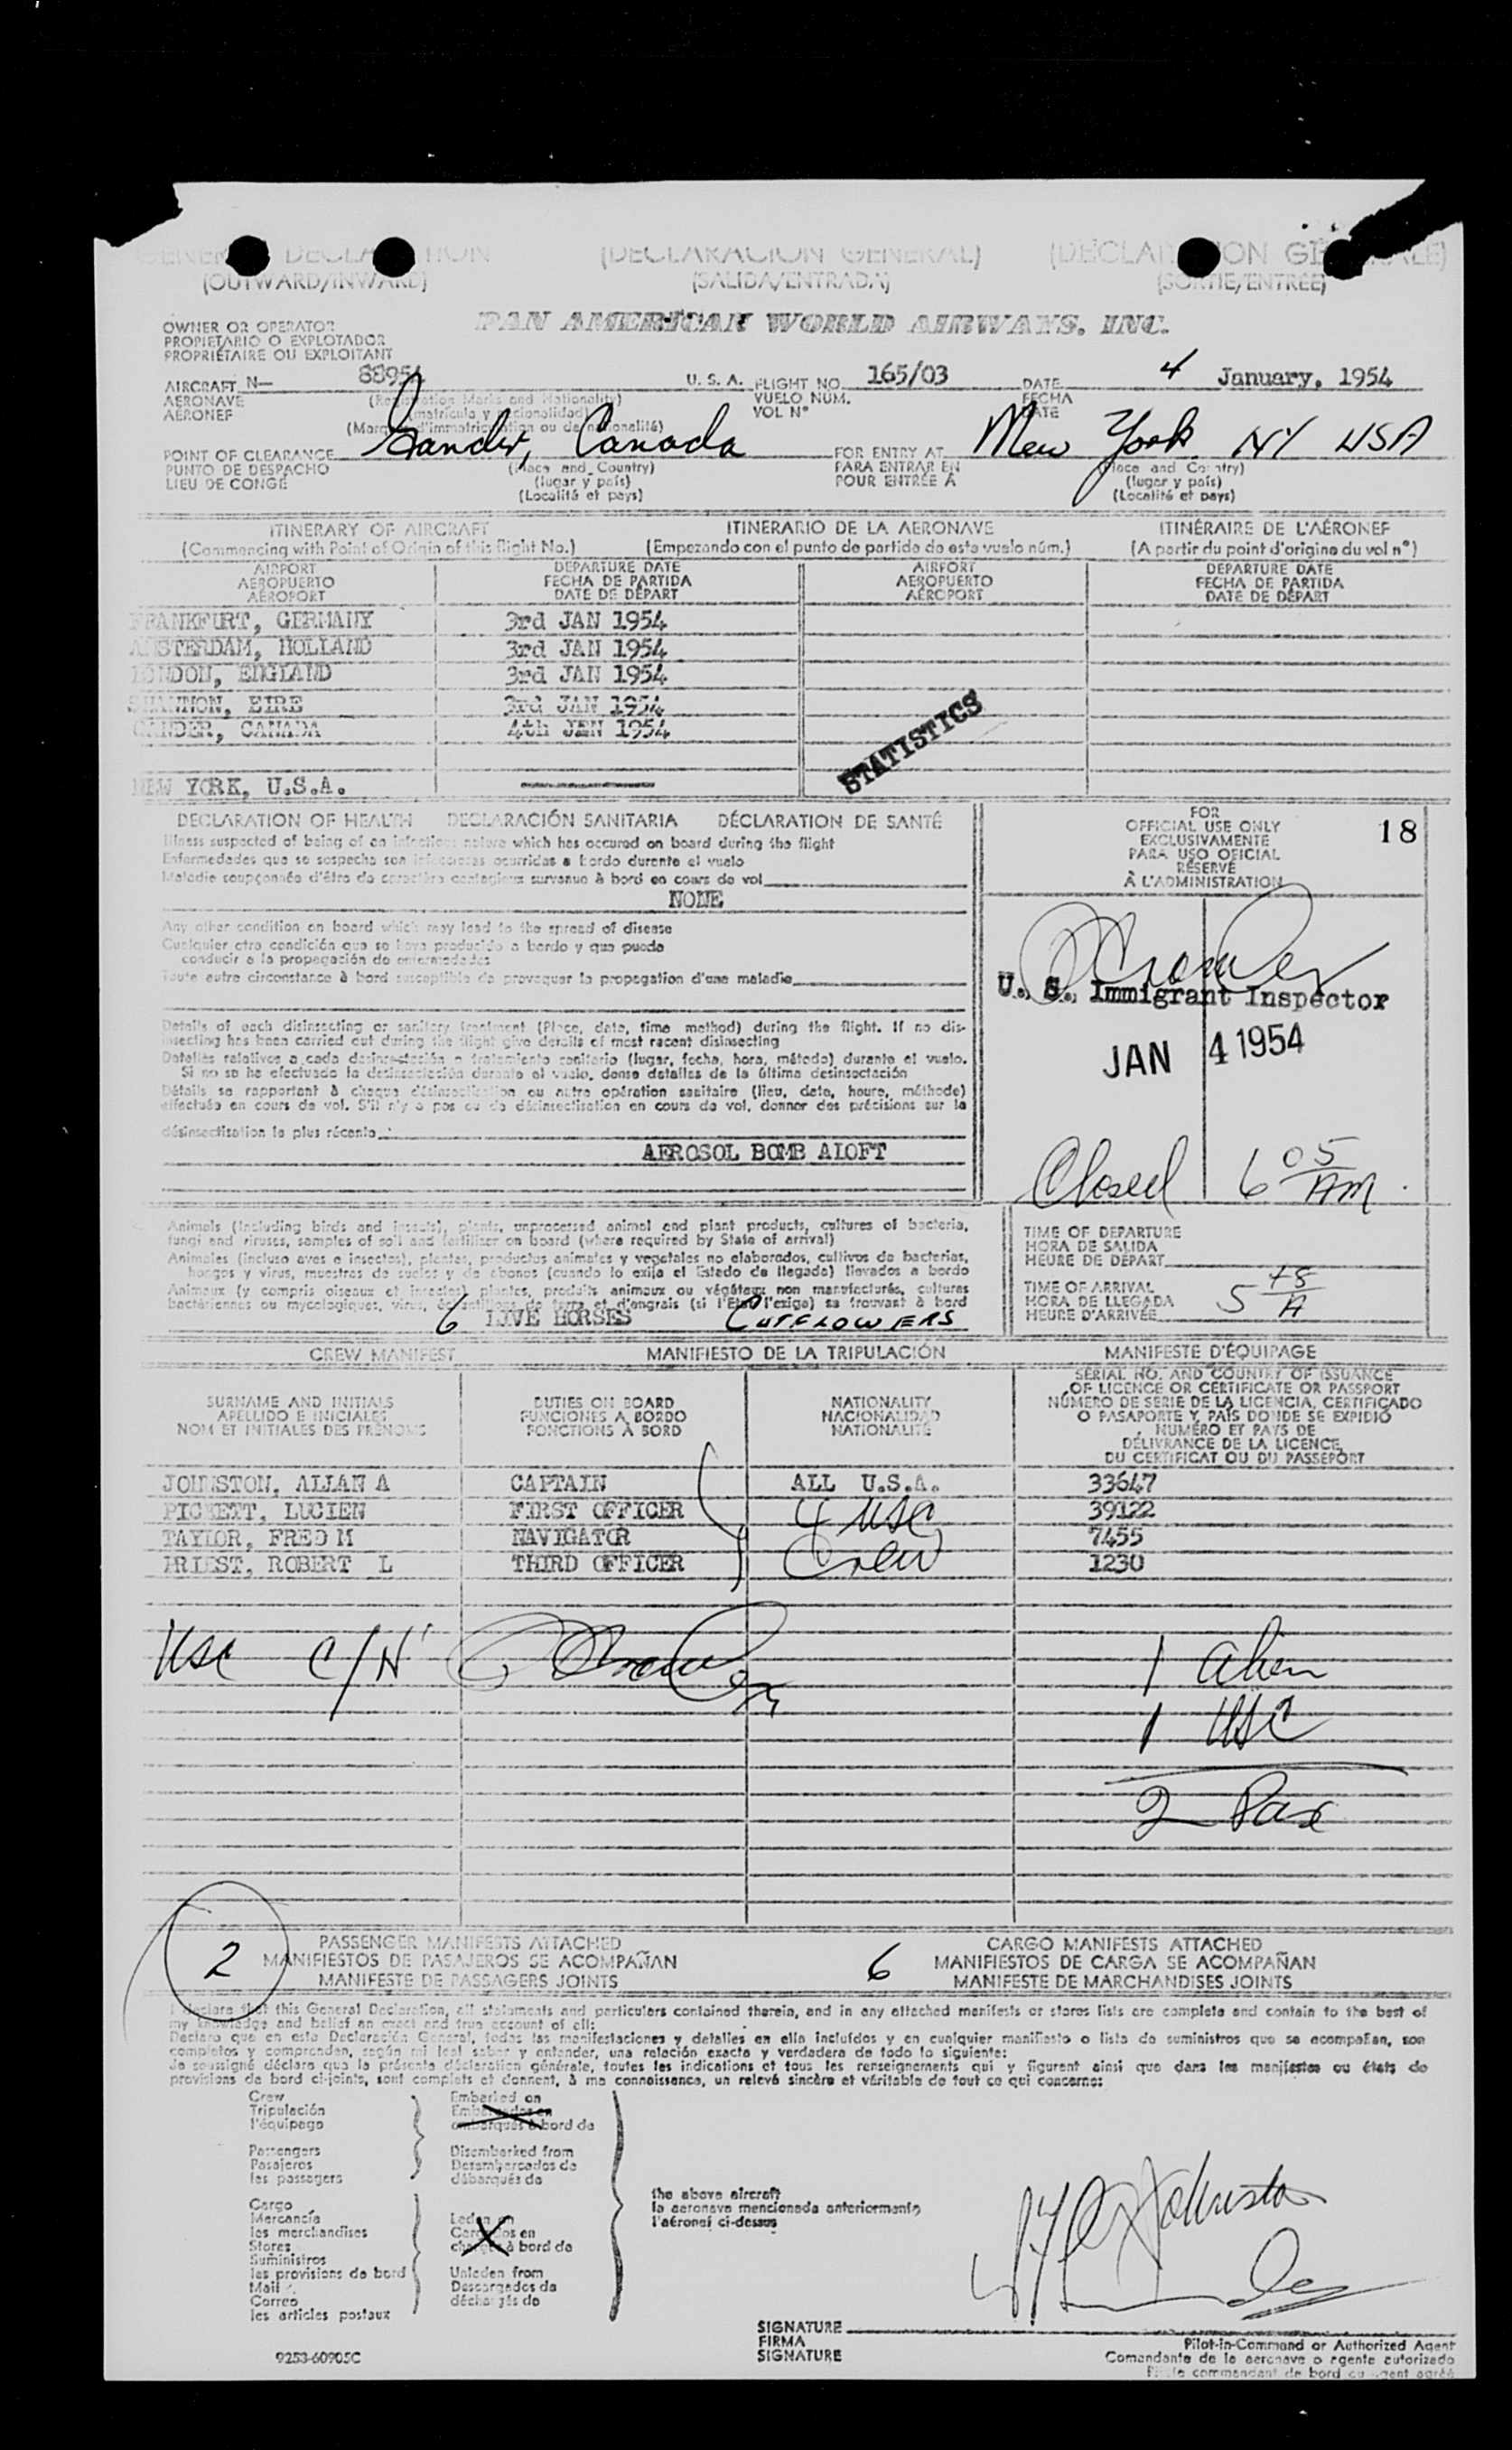 GENERAL DECLARATION (DECLARACION GENERAL) (DECLARATION GENERALE)
(OUTWARD/INWARD) (SALIDA/ENTRADA) (SORTIE/ENTRÉE)
OWNER OR OPERATOR
PROPIETARIO O EXPLOTADOR
PROPRIÉTAIRE OU EXPLOITANT
PAN AMERICAN WORLD AIRWAYS, INC.
AIRCRAFT N— 88951 U. S. A. FLIGHT NO. 165/03 DATE 4 January, 1954
AERONAVE (Registration Marks and Nationality) VUELO NÚM. FECHA
AÉRONEF (matrícula y nacionalidad) VOL Nº DATE
(Marques d'immatriculation ou de nationalité)
POINT OF CLEARANCE Gander, Canada FOR ENTRY AT New York NY USA
PUNTO DE DESPACHO (Place and Country) PARA ENTRAR EN (Place and Country)
LIEU DE CONGÉ (lugar y país) POUR ENTRÉE À (lugar y país)
(Localité et pays) (Localité et pays)
ITINERARY OF AIRCRAFT ITINERARIO DE LA AERONAVE ITINÉRAIRE DE L'AÉRONEF
(Commencing with Point of Origin of this flight No.) (Empezando con el punto de partida de este vuelo núm.) (A partir du point d'origine du vol nº)
AIRPORT DEPARTURE DATE AIRPORT DEPARTURE DATE
AEROPUERTO FECHA DE PARTIDA AEROPUERTO FECHA DE PARTIDA
AÉROPORT DATE DE DÉPART AÉROPORT DATE DE DÉPART
FRANKFURT, GERMANY 3rd JAN 1954
AMSTERDAM, HOLLAND 3rd JAN 1954
LONDON, ENGLAND 3rd JAN 1954
SHANNON, EIRE 3rd JAN 1954
GANDER, CANADA 4th JEN 1954
STATISTICS
NEW YORK, U.S.A.
DECLARATION OF HEALTH DECLARACIÓN SANITARIA DÉCLARATION DE SANTÉ
Illness suspected of being of an infectious nature which has occured on board during the flight
Enfermedades que se sospecha son infecciosas ocurridas a bordo durante el vuelo
Maladie soupçonnée d'être de caractère contagieux survenue à bord en cours de vol
NONE
Any other condition on board which may lead to the spread of disease
Cualquier otra condición que se haya producido a bordo y que pueda
conducir a la propagación de enfermedades
Toute autre circonstance à bord susceptible de provoquer la propagation d'une maladie
Details of each disinsecting or sanitary treatment (Place, date, time method) during the flight. If no dis-
insecting has been carried out during the flight give details of most recent disinsecting
Detalles relativos a cada desinsectación o tratamiento sanitario (lugar, fecha, hora, método) durante el vuelo.
Si no se ha efectuado la desinsectación durante el vuelo, dense detalles de la última desinsectación
Détails se rapportant à chaque désinsectisation ou autre opération sanitaire (lieu, date, heure, méthode)
effectuée en cours de vol. S'il n'y a pas eu de désinsectisation en cours de vol, donner des précisions sur la
désinsectisation la plus récente
AEROSOL BOMB ALOFT
FOR
OFFICIAL USE ONLY 18
EXCLUSIVAMENTE
PARA USO OFICIAL
RÉSERVÉ
À L'ADMINISTRATION
U. S. Immigrant Inspector
JAN 4 1954
Closed 6 05 AM
Animals (including birds and insects), plants, unprocessed animal and plant products, cultures of bacteria,
fungi and viruses, samples of soil and fertilizer on board (where required by State of arrival)
Animales (incluso aves e insectos), plantas, productos animales y vegetales no elaborados, cultivos de bacterias,
hongos y virus, muestras de suelos y de abonos (cuando lo exija el Estado de llegada) llevados a bordo
Animaux (y compris oiseaux et insectes) plantes, produits animaux ou végétaux non manufacturés, cultures
bactériennes ou mycologiques, virus, échantillons de terre et d'engrais (si l'Etat l'exige) se trouvant à bord
6 LIVE HORSES CUT FLOWERS
TIME OF DEPARTURE
HORA DE SALIDA
HEURE DE DÉPART
TIME OF ARRIVAL
HORA DE LLEGADA 5 A
HEURE D'ARRIVÉE
CREW MANIFEST MANIFIESTO DE LA TRIPULACIÓN MANIFESTE D'ÉQUIPAGE
SURNAME AND INITIALS DUTIES ON BOARD NATIONALITY SERIAL NO. AND COUNTRY OF ISSUANCE
APELLIDO E INICIALES FUNCIONES A BORDO NACIONALIDAD OF LICENCE OR CERTIFICATE OR PASSPORT
NOM ET INITIALES DES PRÉNOMS FONCTIONS À BORD NATIONALITÉ NÚMERO DE SERIE DE LA LICENCIA, CERTIFICADO
O PASAPORTE Y PAÍS DONDE SE EXPIDIÓ
NUMÉRO ET PAYS DE
DÉLIVRANCE DE LA LICENCE,
DU CERTIFICAT OU DU PASSEPORT
JOHNSTON, ALLAN A CAPTAIN ALL U.S.A. 33647
PICKETT, LUCIEN FIRST OFFICER 4 USC 39122
TAYLOR, FRED M NAVIGATOR Crew 7455
PRIEST, ROBERT L THIRD OFFICER 1230
USC C/N 1 Alien
1 USC
2 Pax
2 PASSENGER MANIFESTS ATTACHED 6 CARGO MANIFESTS ATTACHED
MANIFIESTOS DE PASAJEROS SE ACOMPAÑAN MANIFIESTOS DE CARGA SE ACOMPAÑAN
MANIFESTE DE PASSAGERS JOINTS MANIFESTE DE MARCHANDISES JOINTS
I declare that this General Declaration, all statements and particulars contained therein, and in any attached manifests or stores lists are complete and contain to the best of
my knowledge and belief an exact and true account of all:
Declaro que en esta Declaración General, todas las manifestaciones y detalles en ella incluídos y en cualquier manifiesto o lista de suministros que se acompañan, son
completos y comprenden, según mi leal saber y entender, una relación exacta y verdadera de todo lo siguiente:
Je soussigné déclare que la présente déclaration générale, toutes les indications et tous les renseignements qui y figurent ainsi que dans les manifestes ou états de
provisions de bord ci-joints, sont complets et donnent, à ma connaissance, un relevé sincère et véritable de tout ce qui concerne:
Crew Embarked on
Tripulación Embarcados en
l'équipage embarqués à bord de
Passengers Disembarked from
Pasajeros Desembarcados de
les passagers débarqués de
the above aircraft
la aeronave mencionada anteriormente
l'aéronef ci-dessus
Cargo
Mercancía Laden on
les marchandises Cargados en
Stores chargés à bord de
Suministros
les provisions de bord Unladen from
Mail Descargados de
Correo déchargés de
les articles postaux
SIGNATURE
FIRMA Pilot-in-Command or Authorized Agent
SIGNATURE Comandante de la aeronave o agente autorizado
9253-60905C Pilote commandant de bord ou agent agréé